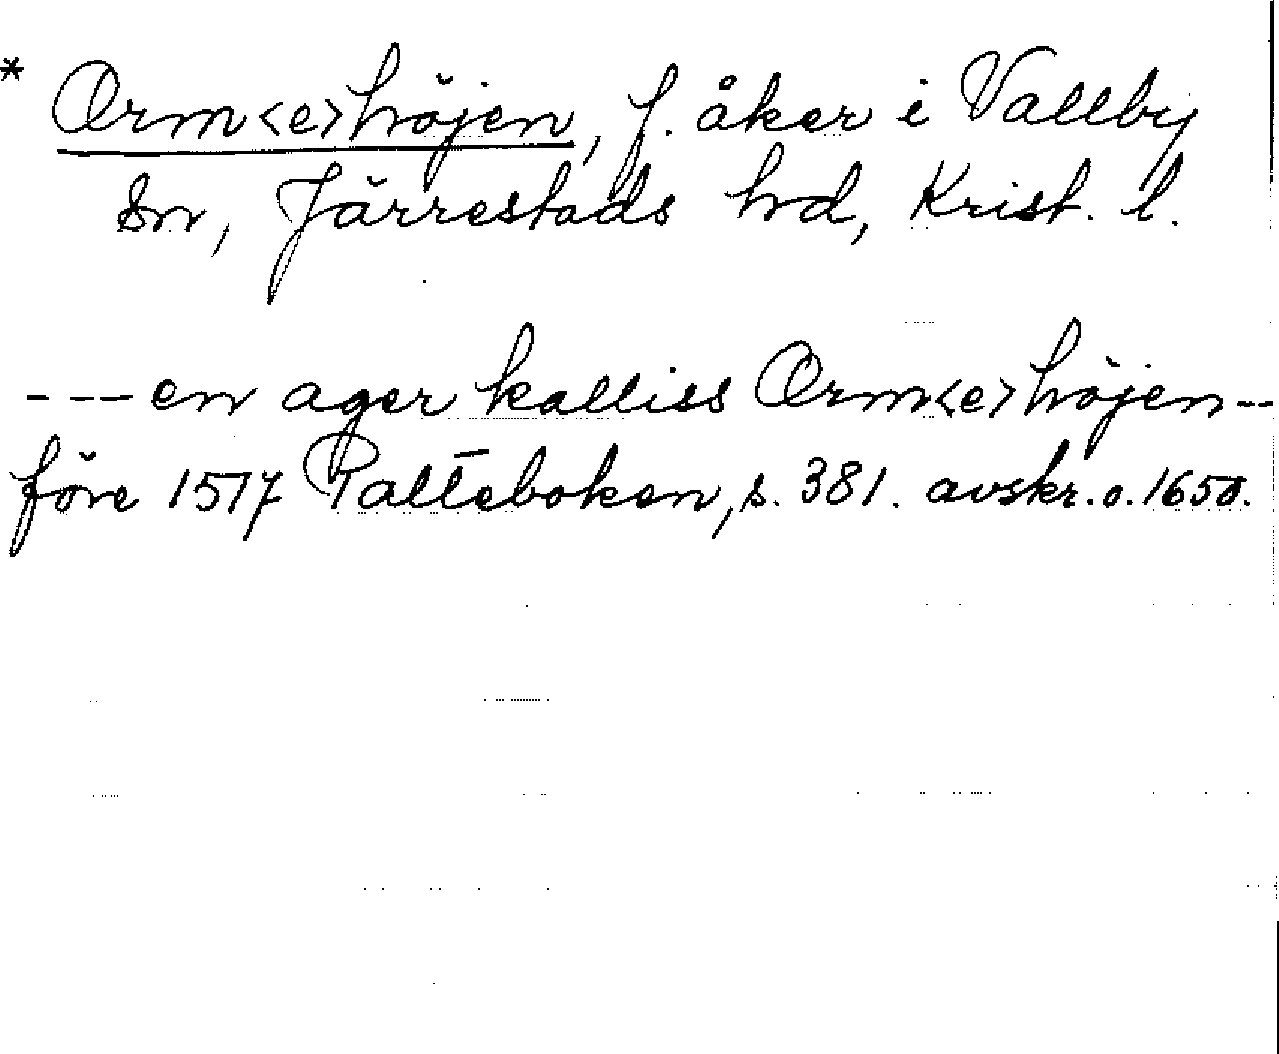 * Orm<e>höjen, f. åker i Vallby
Sn, Järrestads hd, Krist. l.
---en ager kalliss Orm<e>höjen--
före 1517 Palteboken, s. 381. avskr. o. 1650.